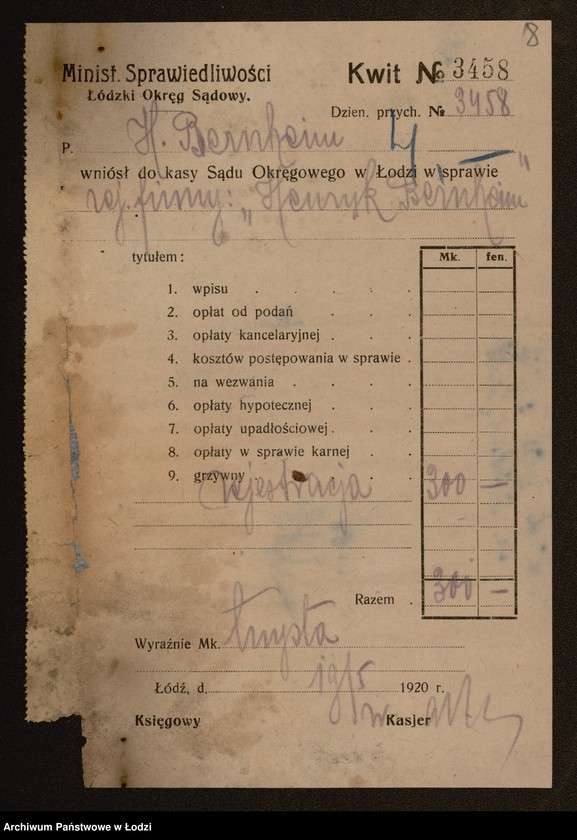 8
Minist. Sprawiedliwości
Kwit № 3458
Łódzki Okręg Sądowy.
Dzien. przych. № 3458
P. H. Bernheim
wniósł do kasy Sądu Okręgowego w Łodzi w sprawie
rej. firmy: „Henryk Bernheim”
tytułem:
Mk. fen.
1. wpisu . . . . .
2. opłat od podań . . .
3. opłaty kancelaryjnej . . .
4. kosztów postępowania w sprawie .
5. na wezwania . . . .
6. opłaty hypotecznej . . .
7. opłaty upadłościowej . . .
8. opłaty w sprawie karnej . .
9. grzywny . . .
rejestracja 300 —
Razem . 300 —
Wyraźnie Mk. trzysta
Łódź, d. 19/5 1920 r.
Księgowy Kasjer
Archiwum Państwowe w Łodzi